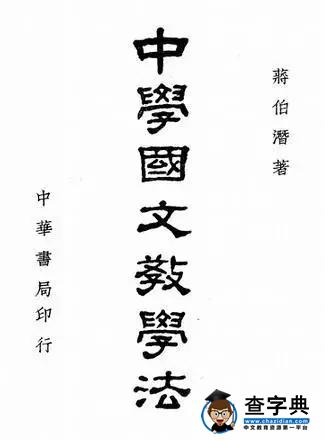 蔣伯潛著
中學國文教學法
中華書局印行
查字典
www.chazidian.com
中文教育资源第一平台